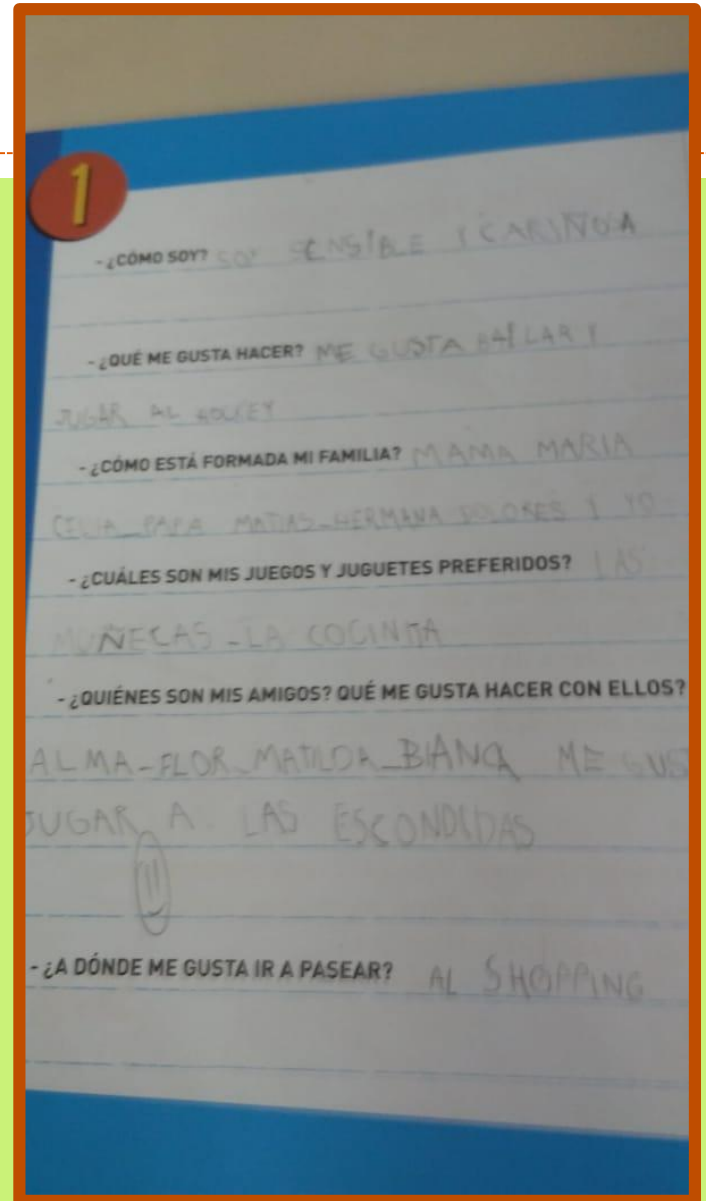 1
- ¿CÓMO SOY? SOY SENSIBLE Y CARIÑOSA
- ¿QUÉ ME GUSTA HACER? ME GUSTA BAILAR Y
JUGAR AL HOCKEY
- ¿CÓMO ESTÁ FORMADA MI FAMILIA? MAMA MARIA
PAPA MATIAS-HERMANA DOLORES Y YO
- ¿CUÁLES SON MIS JUEGOS Y JUGUETES PREFERIDOS? LAS
MUÑECAS - LA COCINITA
- ¿QUIÉNES SON MIS AMIGOS? QUÉ ME GUSTA HACER CON ELLOS?
ALMA-FLOR-MATILDA-BIANCA ME GUS
JUGAR A LAS ESCONDIDAS
- ¿A DÓNDE ME GUSTA IR A PASEAR? AL SHOPPING